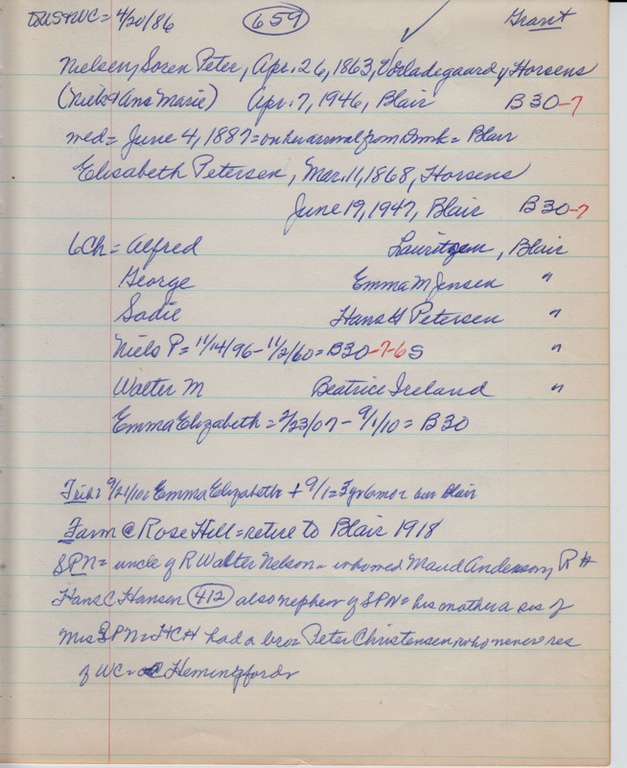 to US+WC = 4/20/86 659 Grant
Nielsen, Soren Peter, Apr. 26, 1863, Horsens
(Niels + Ana Marie) Apr. 7, 1946, Blair B30-7
wed = June 4, 1887 = on her arrival from Dmk = Blair
Elisabeth Petersen, Mar. 11, 1868, Horsens
June 19, 1947, Blair B30-7
6 Ch = Alfred Lauritzen, Blair
George Emma M Jensen "
Sadie Hans Petersen "
Niels P = 11/14/96 - 11/2/60 = B30-7-6 S "
Walter M Beatrice Ireland "
Emma Elizabeth = 2/23/07 - 9/1/10 = B30
Emma Elizabeth + 9/1 = 3 yr 6 mo Blair
Farm @ Rose Hill = retire to Blair 1918
SPN = uncle of R Walter Nelson - who wed Maud Anderson, R #
Hans C Hansen 412 also nephew of SPN = his mother a sis of
Mrs SPN = HCH had a bro Peter Christensen, who never res
of WC = Hemingford